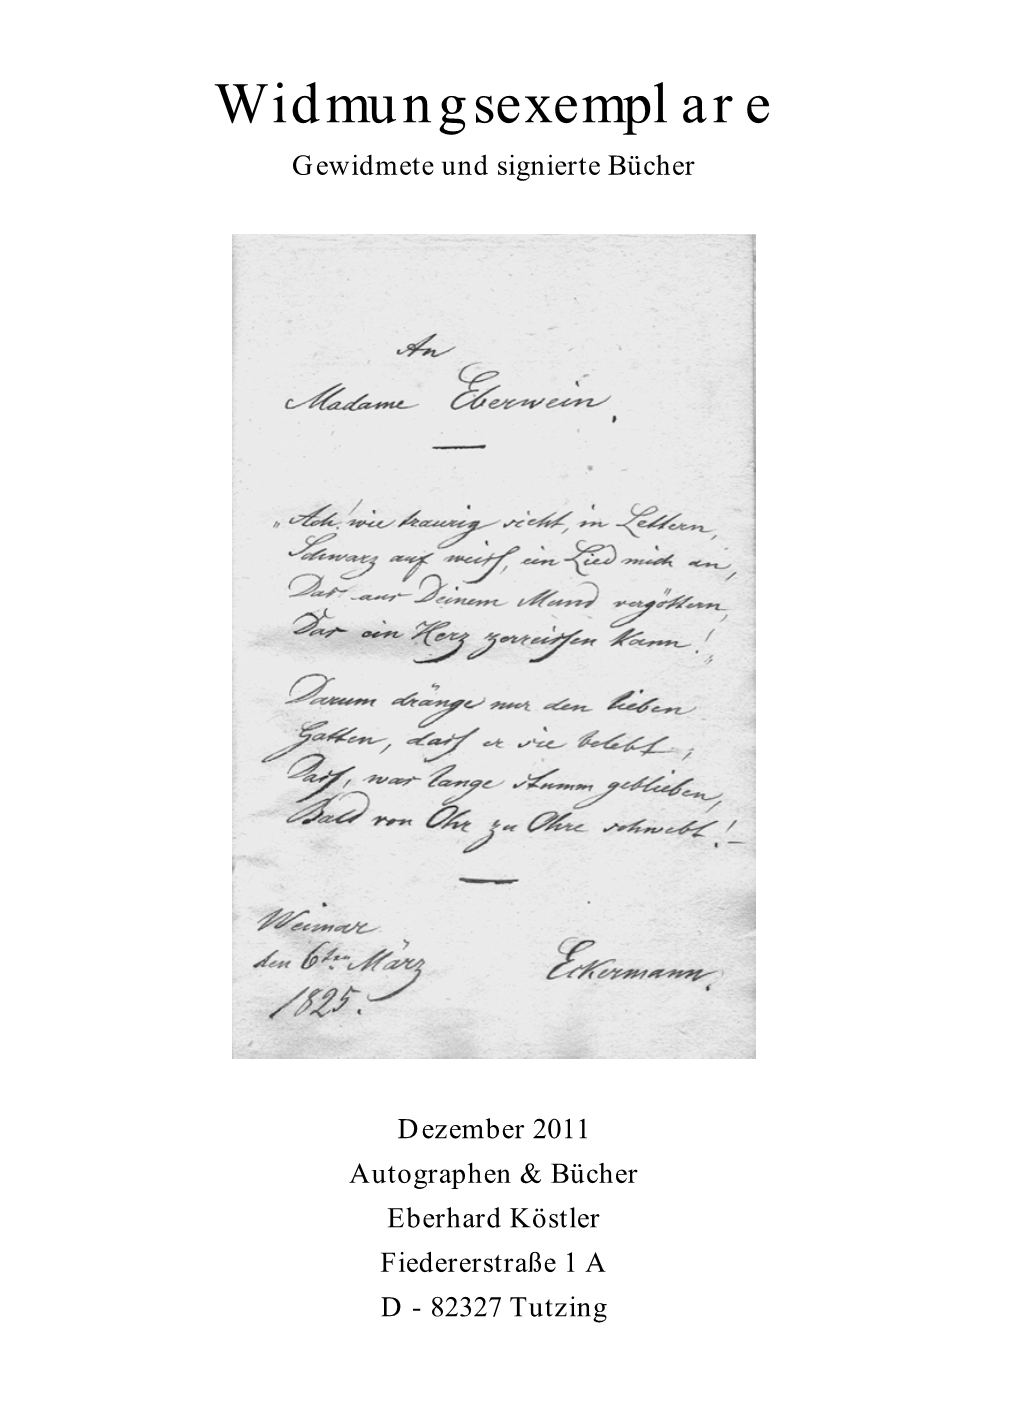 Widmungsexemplare
Gewidmete und signierte Bücher
An
Madame Eberwein.
„Ach! wie traurig sieht, in Lettern,
Schwarz auf weiss, ein Lied mich an,
Das aus Deinem Mund vergöttern,
Das ein Herz zerreissen kann!„
Darum dränge nur den lieben
Gatten, dass er sie belebt,
Dass, was lange stumm geblieben,
Bald von Ohr zu Ohre schwebt! –
Weimar
den 6ten März
1825.
Eckermann.
Dezember 2011
Autographen & Bücher
Eberhard Köstler
Fiedererstraße 1 A
D - 82327 Tutzing